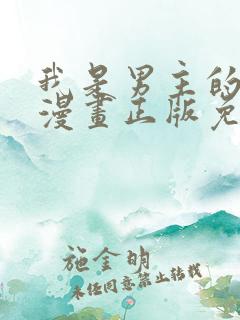 我是男主的
漫畫正版免
施金明
未经同意禁止转载